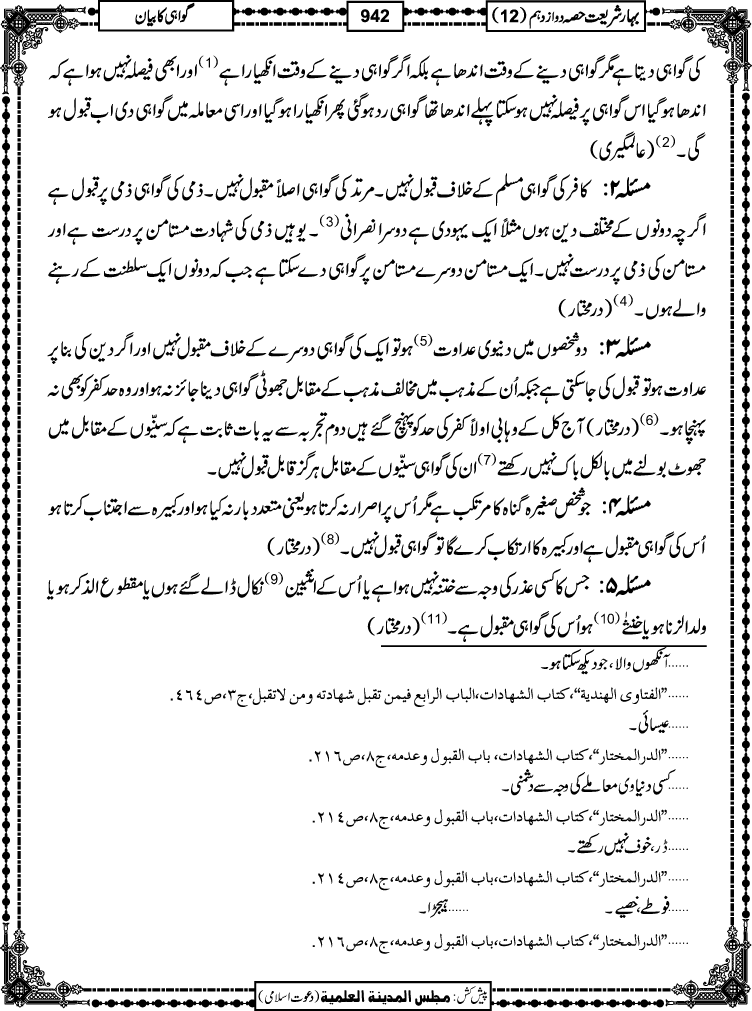 بہارِ شریعت حصہ دوازدہم (12)
942
گواہی کا بیان
کی گواہی دیتا ہے مگر گواہی دینے کے وقت اندھا ہے بلکہ اگر گواہی دینے کے وقت انکھیارا ہے (1) اور ابھی فیصلہ نہیں ہوا ہے کہ
اندھا ہو گیا اس گواہی پر فیصلہ نہیں ہو سکتا پہلے اندھا تھا گواہی رد ہو گئی پھر انکھیارا ہو گیا اور اسی معاملہ میں گواہی دی اب قبول ہو
گی۔ (2) (عالمگیری)
مسئلہ ۲: کافر کی گواہی مسلم کے خلاف قبول نہیں۔ مرتد کی گواہی اصلاً مقبول نہیں۔ ذمی کی گواہی ذمی پر قبول ہے
اگرچہ دونوں کے مختلف دین ہوں مثلاً ایک یہودی ہے دوسرا نصرانی (3)۔ یوہیں ذمی کی شہادت مستامن پر درست ہے اور
مستامن کی ذمی پر درست نہیں۔ ایک مستامن دوسرے مستامن پر گواہی دے سکتا ہے جب کہ دونوں ایک سلطنت کے رہنے
والے ہوں۔ (4) (درمختار)
مسئلہ ۳: دو شخصوں میں دنیوی عداوت (5) ہو تو ایک کی گواہی دوسرے کے خلاف مقبول نہیں اور اگر دین کی بنا پر
عداوت ہو تو قبول کی جا سکتی ہے جبکہ اُن کے مذہب میں مخالف مذہب کے مقابل جھوٹی گواہی دینا جائز نہ ہو اور وہ حد کفر کو بھی نہ
پہنچا ہو۔ (6) (درمختار) آج کل کے وہابی اولاً کفر کی حد کو پہنچ گئے ہیں دوم تجربہ سے یہ بات ثابت ہے کہ سنّیوں کے مقابل میں
جھوٹ بولنے میں بالکل باک نہیں رکھتے (7) ان کی گواہی سنّیوں کے مقابل ہرگز قابل قبول نہیں۔
مسئلہ ۴: جو شخص صغیرہ گناہ کا مرتکب ہے مگر اُس پر اصرار نہ کرتا ہو یعنی متعدد بار نہ کیا ہو اور کبیرہ سے اجتناب کرتا ہو
اُس کی گواہی مقبول ہے اور کبیرہ کا ارتکاب کرے گا تو گواہی قبول نہیں۔ (8) (درمختار)
مسئلہ ۵: جس کا کسی عذر کی وجہ سے ختنہ نہیں ہوا ہے یا اُس کے انثیین (9) نکال ڈالے گئے ہوں یا مقطوع الذکر ہو یا
ولد الزنا ہو یا خنثےٰ (10) ہو اُس کی گواہی مقبول ہے۔ (11) (درمختار)
......آنکھوں والا، جو دیکھ سکتا ہو۔
......”الفتاوی الھندیة“،کتاب الشھادات،الباب الرابع فیمن تقبل شھادتہ ومن لاتقبل،ج٣،ص٤٦٤.
......عیسائی۔
......”الدرالمختار“،کتاب الشھادات، باب القبول وعدمه،ج٨،ص٢١٦.
......کسی دنیاوی معاملے کی وجہ سے دشمنی۔
......”الدرالمختار“،کتاب الشھادات،باب القبول وعدمه،ج٨،ص٢١٤.
......ڈر، خوف نہیں رکھتے۔
......”الدرالمختار“،کتاب الشھادات،باب القبول وعدمه،ج٨،ص٢١٤.
......فوطے، خصیے۔ ......ہیجڑا۔
......”الدرالمختار“،کتاب الشھادات،باب القبول وعدمه،ج٨،ص٢١٦.
پیش کش: مجلس المدینة العلمیة (دعوت اسلامی)